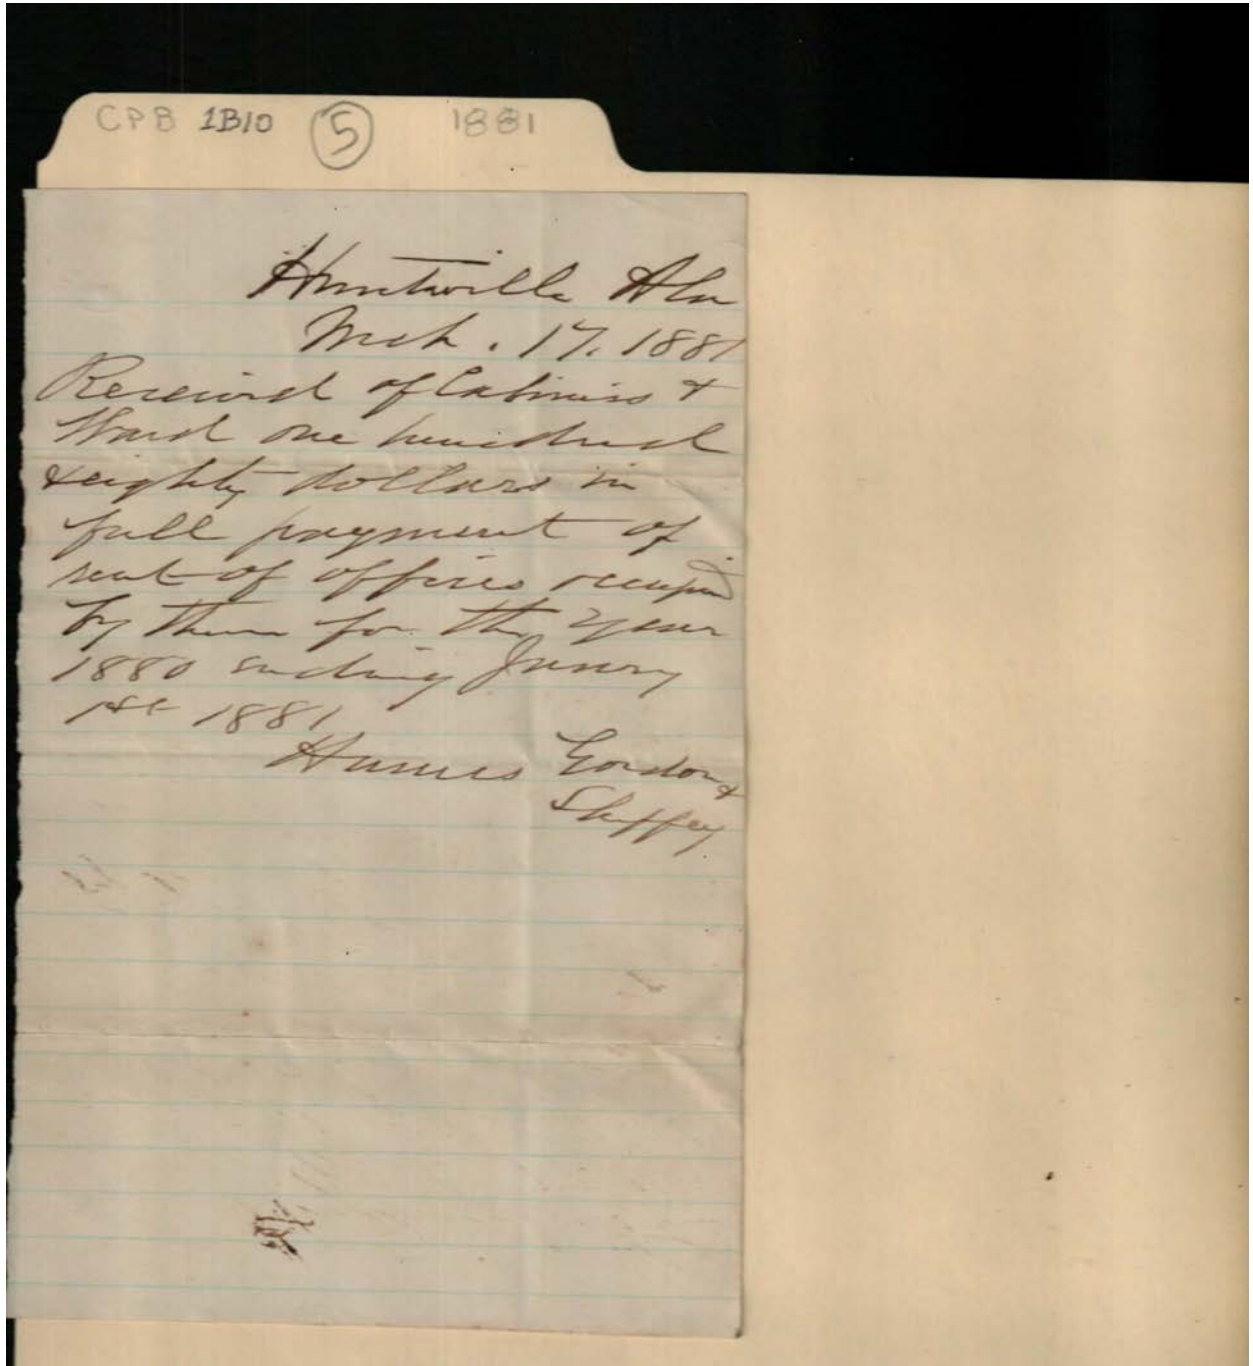 CPB 1B10 5 1881
Huntsville Ala
Mch. 17. 1881
Received of Cabiniss &
Ward one hundred
& eighty dollars in
full payment of
rent of offices occupied
by them for the year
1880 ending January
1st 1881
Humes Gordon &
Sheffey